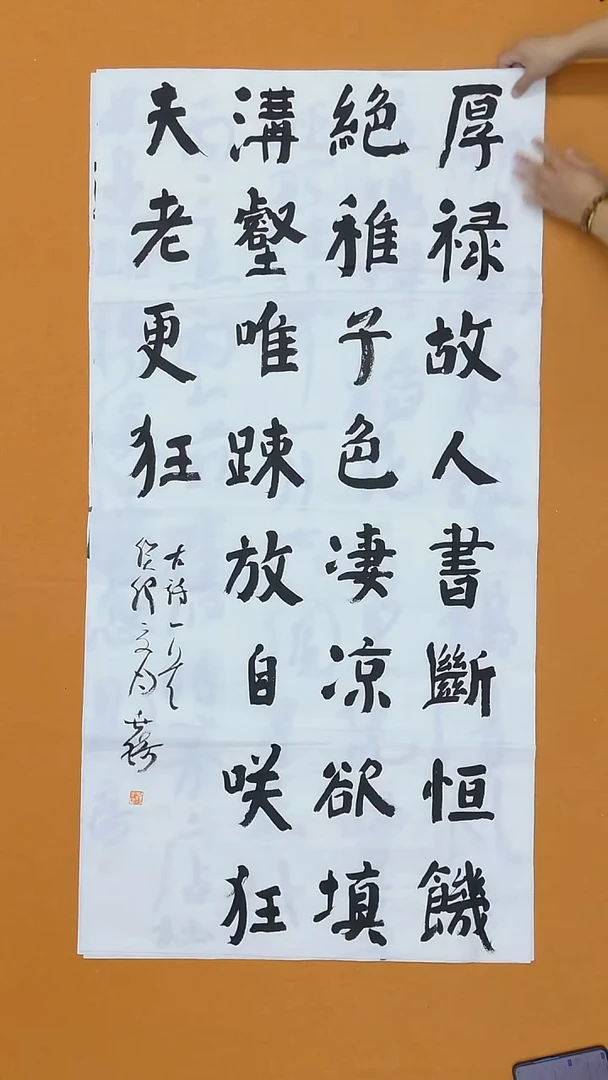 厚禄故人書斷恒饑
絶稚子色凄凉欲填
溝壑唯踈放自咲狂
夫老更狂
古詩一首
癸卯